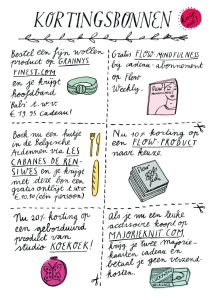 KORTINGSBONNEN
Bestel een fijn wollen
product op GRANNYS
FINEST.COM
en je krijgt
hoofdband
Babs t.w.v
€ 19,95 cadeau!
Gratis FLOW-MINDFULNESS
bij cadeau-abonnement
op Flow
Weekly.
Boek nu een hutje
in de Belgische
Ardennen via LES
CABANES DE REN-
SIWEZ en je krijgt
met deze bon een
gratis ontbijt t.w.v
€ 10,50 (één persoon)
Nu 10% korting op
een FLOW-PRODUCT
naar keuze
Nu 20% korting op
een geborduurd
product van
studio KOEKOEK!
Als je nu een leuke
accessoire koopt op
MAJORIEKNIT.COM,
krijg je twee Majorie-
kaarten cadeau en
betaal je geen verzend-
kosten.